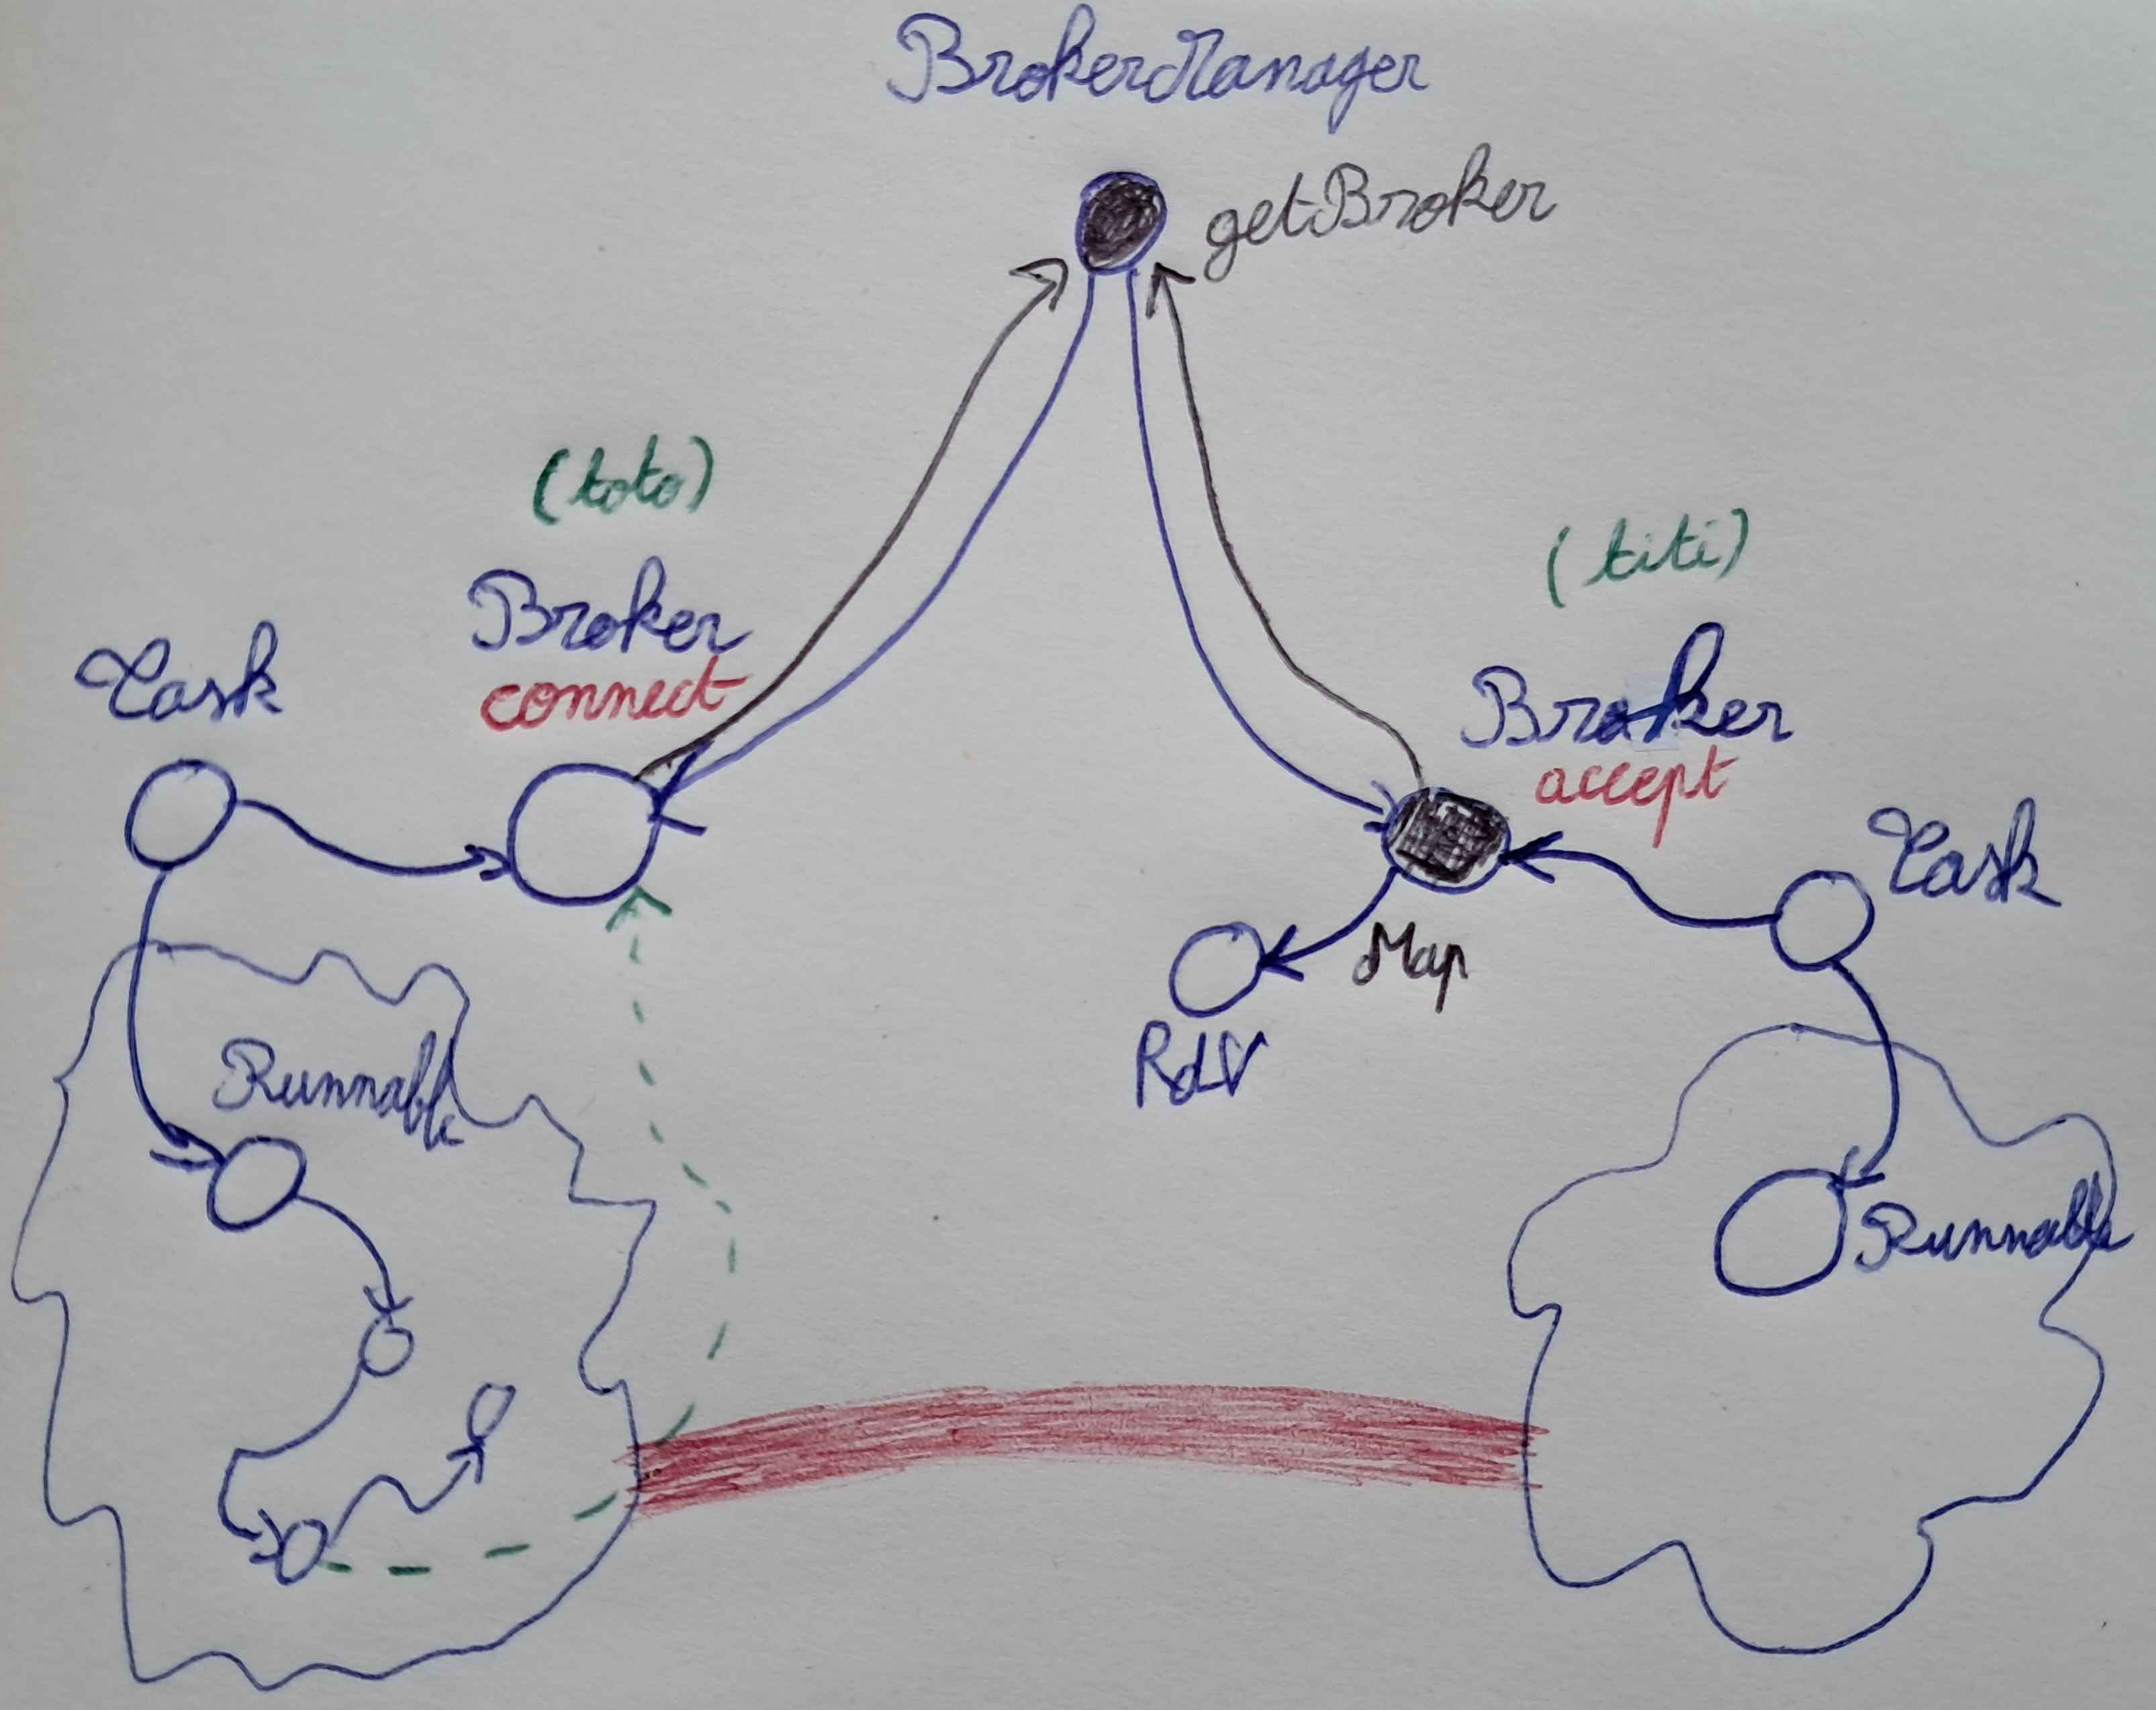 BrokerManager
getBroker
(toto)
Broker
connect
Task
(titi)
Broker
accept
Task
Map
RdV
Runnable
Runnable